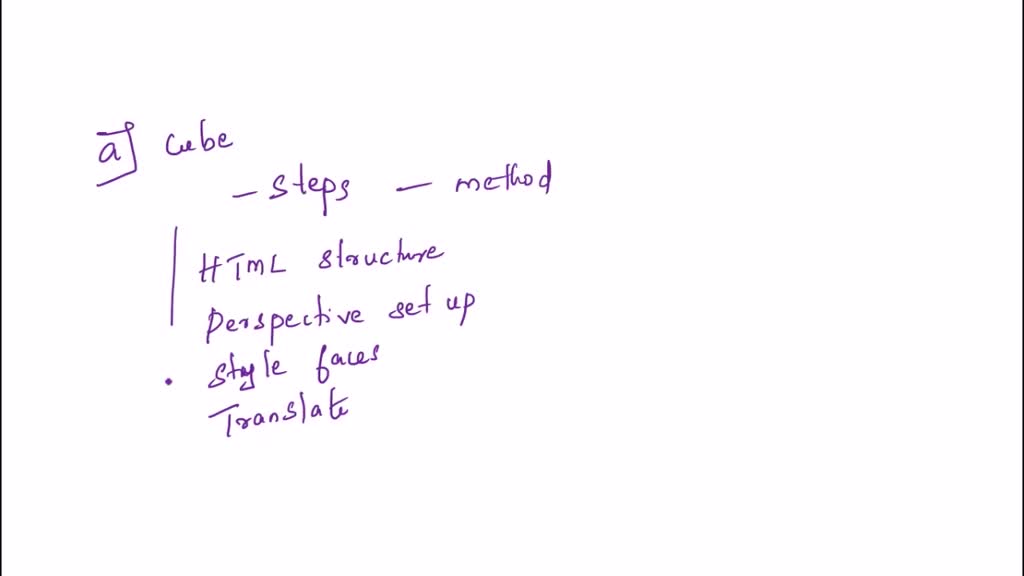 a] cube
- steps - method
HTML structure
perspective set up
• style faces
Translate